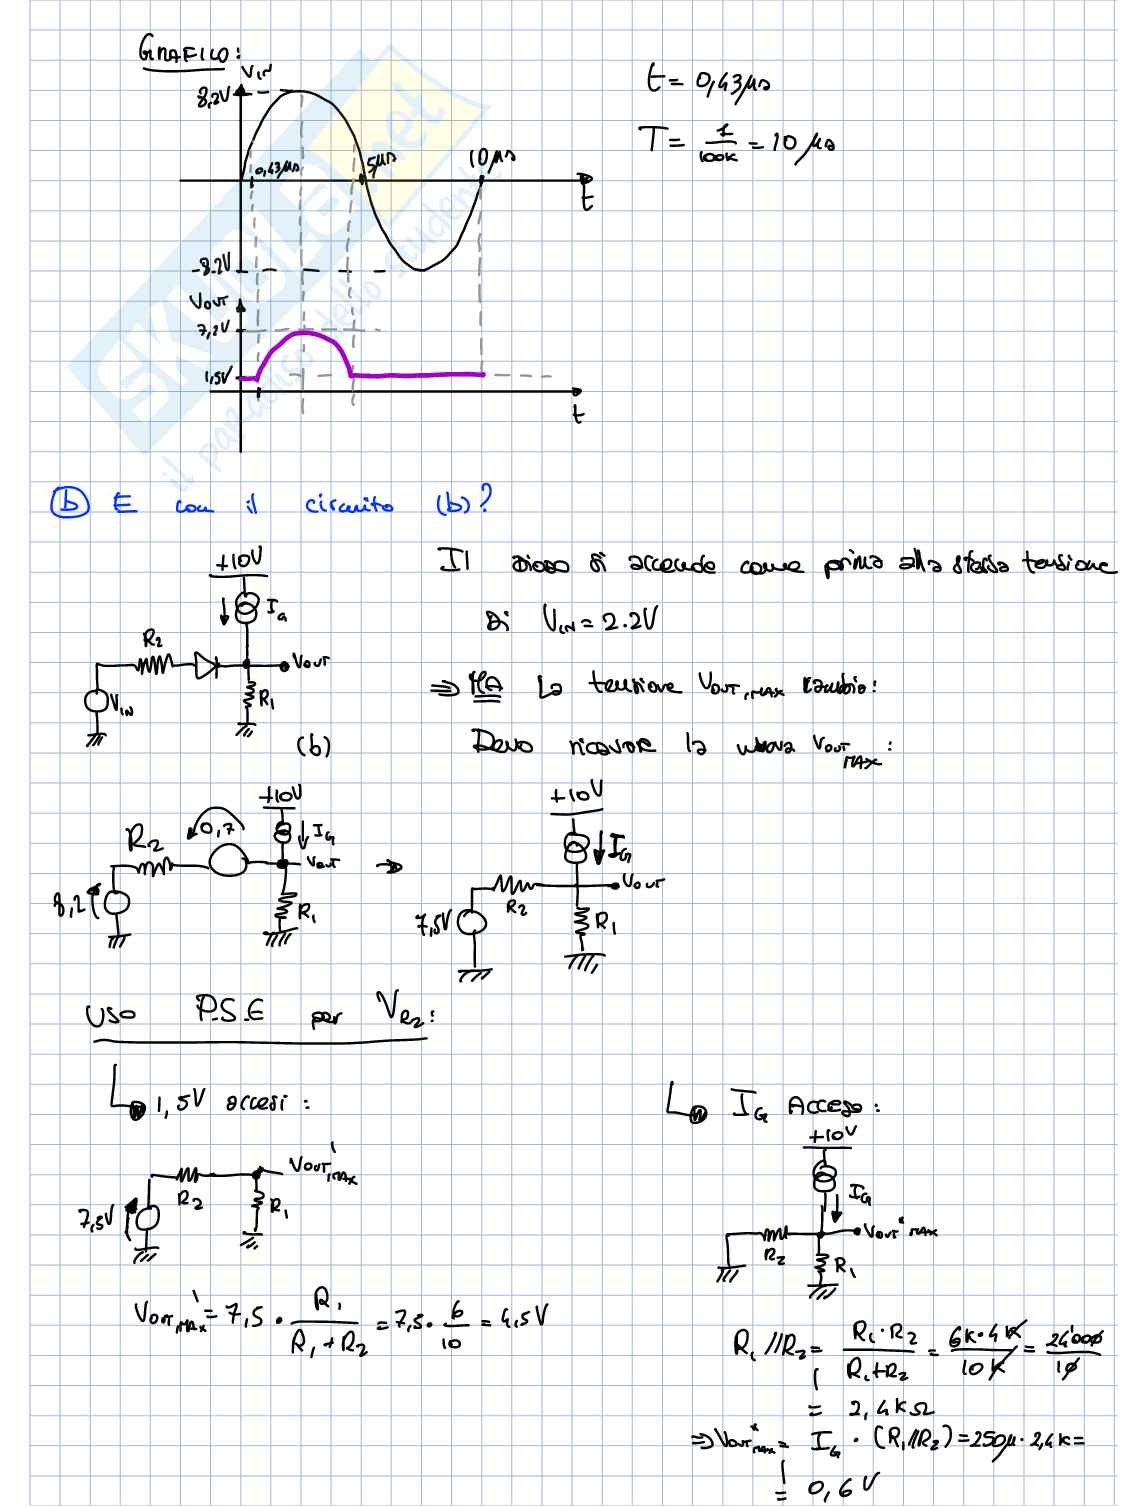 GRAFICO:
VIN
8,2V
0,43μs
5μs
10μs
t
-8.2V
VOUT
7,2V
1,5V
t
t = 0,43μs
T = 1/100K = 10 μs
SKUOLA.net
il paradiso dello studente
(b) E con il circuito (b)?
+10V
IG
R2
VOUT
VIN
R1
(b)
Il diodo si accende come prima alla stessa tensione
di VIN = 2.2V
⇒ MA la tensione VOUT,MAX cambia:
Devo ricavare la nuova VOUT MAX:
+10V
R2
0,7
IG
VOUT
8,2
R1
+10V
IG
VOUT
R2
7,5V
R1
USO P.S.E per VR2:
1,5V accesi:
VOUT,MAX'
R2
R1
7,5V
VOUT,MAX' = 7,5 · R1/(R1+R2) = 7,5 · 6/10 = 4,5V
IG Acceso:
+10V
IG
VOUT* MAX
R2
R1
R1//R2 = R1·R2/(R1+R2) = 6K·4K/10K = 24'000/10
= 2,4KΩ
⇒ VOUT*MAX = IG · (R1//R2) = 250μ · 2,4K =
= 0,6V